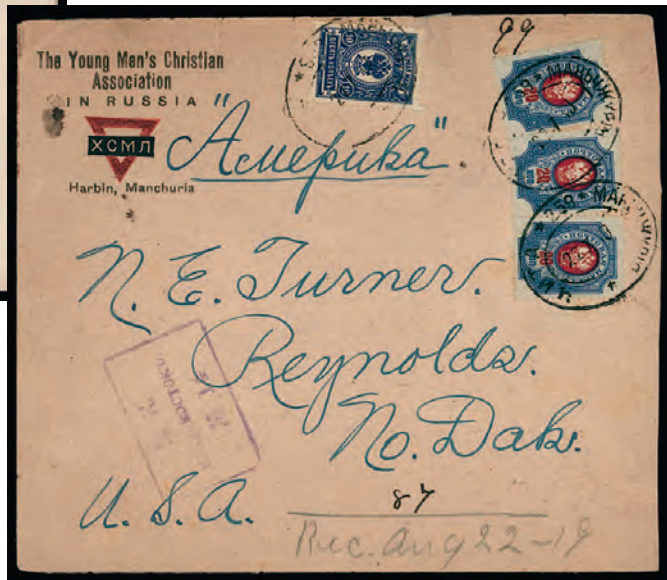 The Young Men's Christian
Association
IN RUSSIA
ХСМЛ
Harbin, Manchuria
99
"Америка"
N. E. Turner.
Reynolds.
No. Dak.
U. S. A.
87
Rec. Aug 22-19
20
20